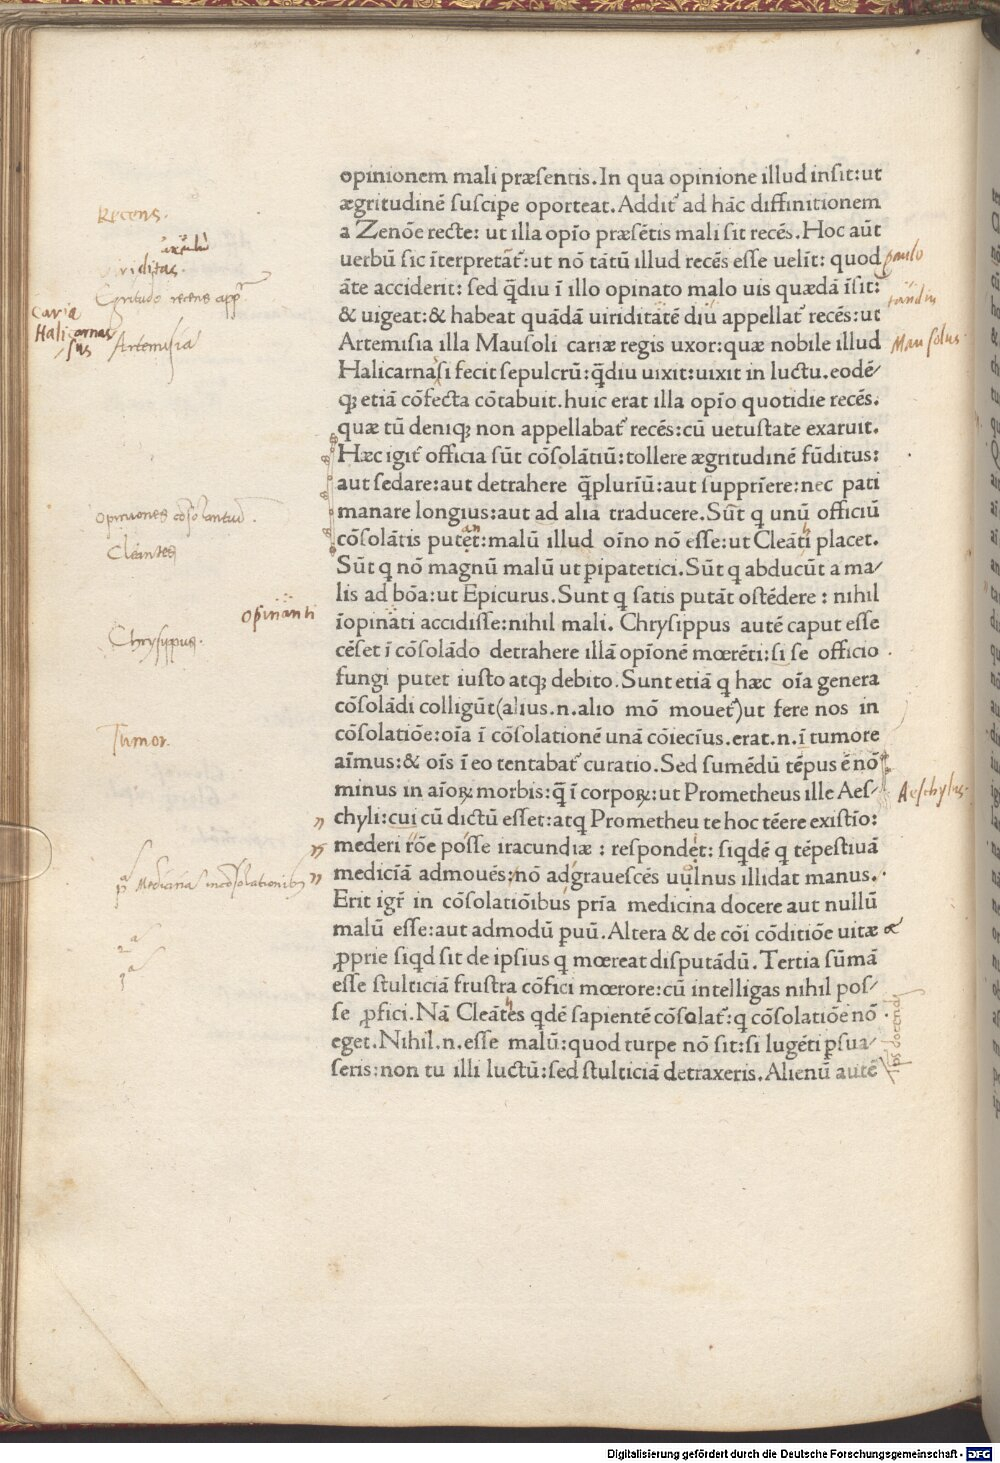 opinionem mali præsentis. In qua opinione illud insit: ut
ægritudinē suscipe oporteat. Addit᷑ ad hāc diffinitionem
a Zenōe recte: ut illa opīo præsētis mali sit recēs. Hoc aūt
uerbū sic īterpretāt᷑: ut nō tātū illud recēs esse uelīt: quod
āte acciderit: sed q̄diu ī illo opinato malo uis quædā īsit:
& uigeat: & habeat quādā uiriditatē diu appellat᷑ recēs: ut
Artemisia illa Mausoli cariæ regis uxor: quæ nobile illud
Halicarnasi fecit sepulcrū: q̄diu uixit: uixit in luctu. eodē/
q; etiā cōfecta cōtabuit. huic erat illa opīo quotidie recēs.
quæ tū deniq; non appellabat᷑ recēs: cū uetustate exaruit.
Hæc igit᷑ officia sūt cōsolātiū: tollere ægritudinē fūditus:
aut sedare: aut detrahere q̄pluriū: aut supprīere: nec pati
manare longius: aut ad alia traducere. Sūt q unū officiū
cōsolātis putet: malū illud oīno nō esse: ut Cleāti placet.
Sūt q nō magnū malū ut pipatetici. Sūt q abducūt a ma/
lis ad bōa: ut Epicurus. Sunt q satis putāt ostēdere: nihil
īopinati accidisse: nihil mali. Chrysippus autē caput esse
cēset ī cōsolādo detrahere illā opīonē mœrēti: si se officio
fungi putet iusto atq; debito. Sunt etiā q hæc oīa genera
cōsolādi colligūt (alius .n. alio mō mouet᷑) ut fere nos in
cōsolatiōe: oīa ī cōsolationē unā cōiecīus. erat .n. ī tumore
aīmus: & oīs ī eo tentabat᷑ curatio. Sed sumēdū tēpus ē nō
minus in aīoꝝ morbis: q̄ ī corpoꝝ: ut Prometheus ille Aes/
chyli: cui cū dictū esset: atq Prometheu te hoc tēere existīo:
mederi rōe posse iracundiæ: respondet: siqdē q tēpestiuā
mediciā admouēs: nō adgrauescēs uulnus illidat manus.
Erit igr᷑ in cōsolatiōibus prīa medicina docere aut nullū
malū esse: aut admodū puū. Altera & de cōi cōditiōe uitæ &
ꝓprie siqd sit de ipsius q mœreat disputādū. Tertia sūmā
esse stulticiā frustra cōfici mœrore: cū intelligas nihil pos/
se ꝓfici. Nā Cleātes qdē sapientē cōsolat᷑: q cōsolatiōe nō
eget. Nihil .n. esse malū: quod turpe nō sit: si lugēti psua/
seris: non tu illi luctū: sed stulticiā detraxeris. Alienū autē
Recens.
viriditas.
Egritudo recens app
Caria
Halicarnas
sus
Artemisia
opiniones cōsolantiū.
Cleantes
opinanti
Chrysippus.
Tumor.
pa Medicina in cōsolationibus
2a
3a
paulo
tandiu
Mausolus
Aeschylus
Digitalisierung gefördert durch die Deutsche Forschungsgemeinschaft - DFG